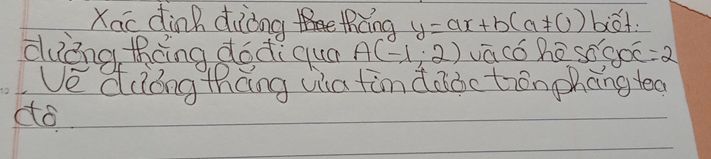 Xác định đường thẳng y=ax+b(a≠0) biết:
đường thẳng đó đi qua A(-1;2) và có hệ số góc=2
. Vẽ đường thẳng vừa tìm được trên phẳng tọa
độ